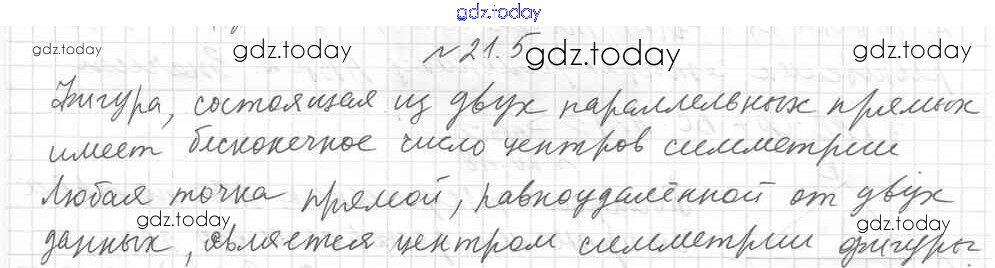 gdz.today
gdz.today gdz.today № 21.5 gdz.today gdz.today
Фигура, состоящая из двух параллельных прямых
имеет бесконечное число центров симметрии
Любая точка прямой, равноудалённой от двух
gdz.today gdz.today
данных, является центром симметрии фигуры.